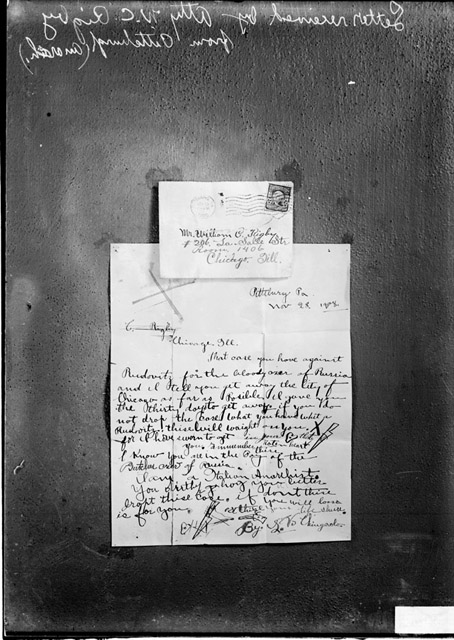 Letter received by Atty W.C. Rigby
from Pittsburg (anarch.)
Mr. William C. Rigby
# 206 La Salle Str
Room 1406
Chicago, Ill.
Pittsburg Pa
Nov 28 1908
C. Rigby
Chicago, Ill.
That case you have against
Rudovitz for the bloody axer of Russia
and I tell you get away the city of
Chicago as far as Posible I gave you
the thirty days to get away if you do
not drop the Case what you have with
Rudovitz these will weight on you. X
for I have sworn to get in your
you, remember
I know you are in the Pay of the
of Russia.
I am a Italian Anarchist.
You dirty you better
drop these Case if dont there
is for you
your life
By